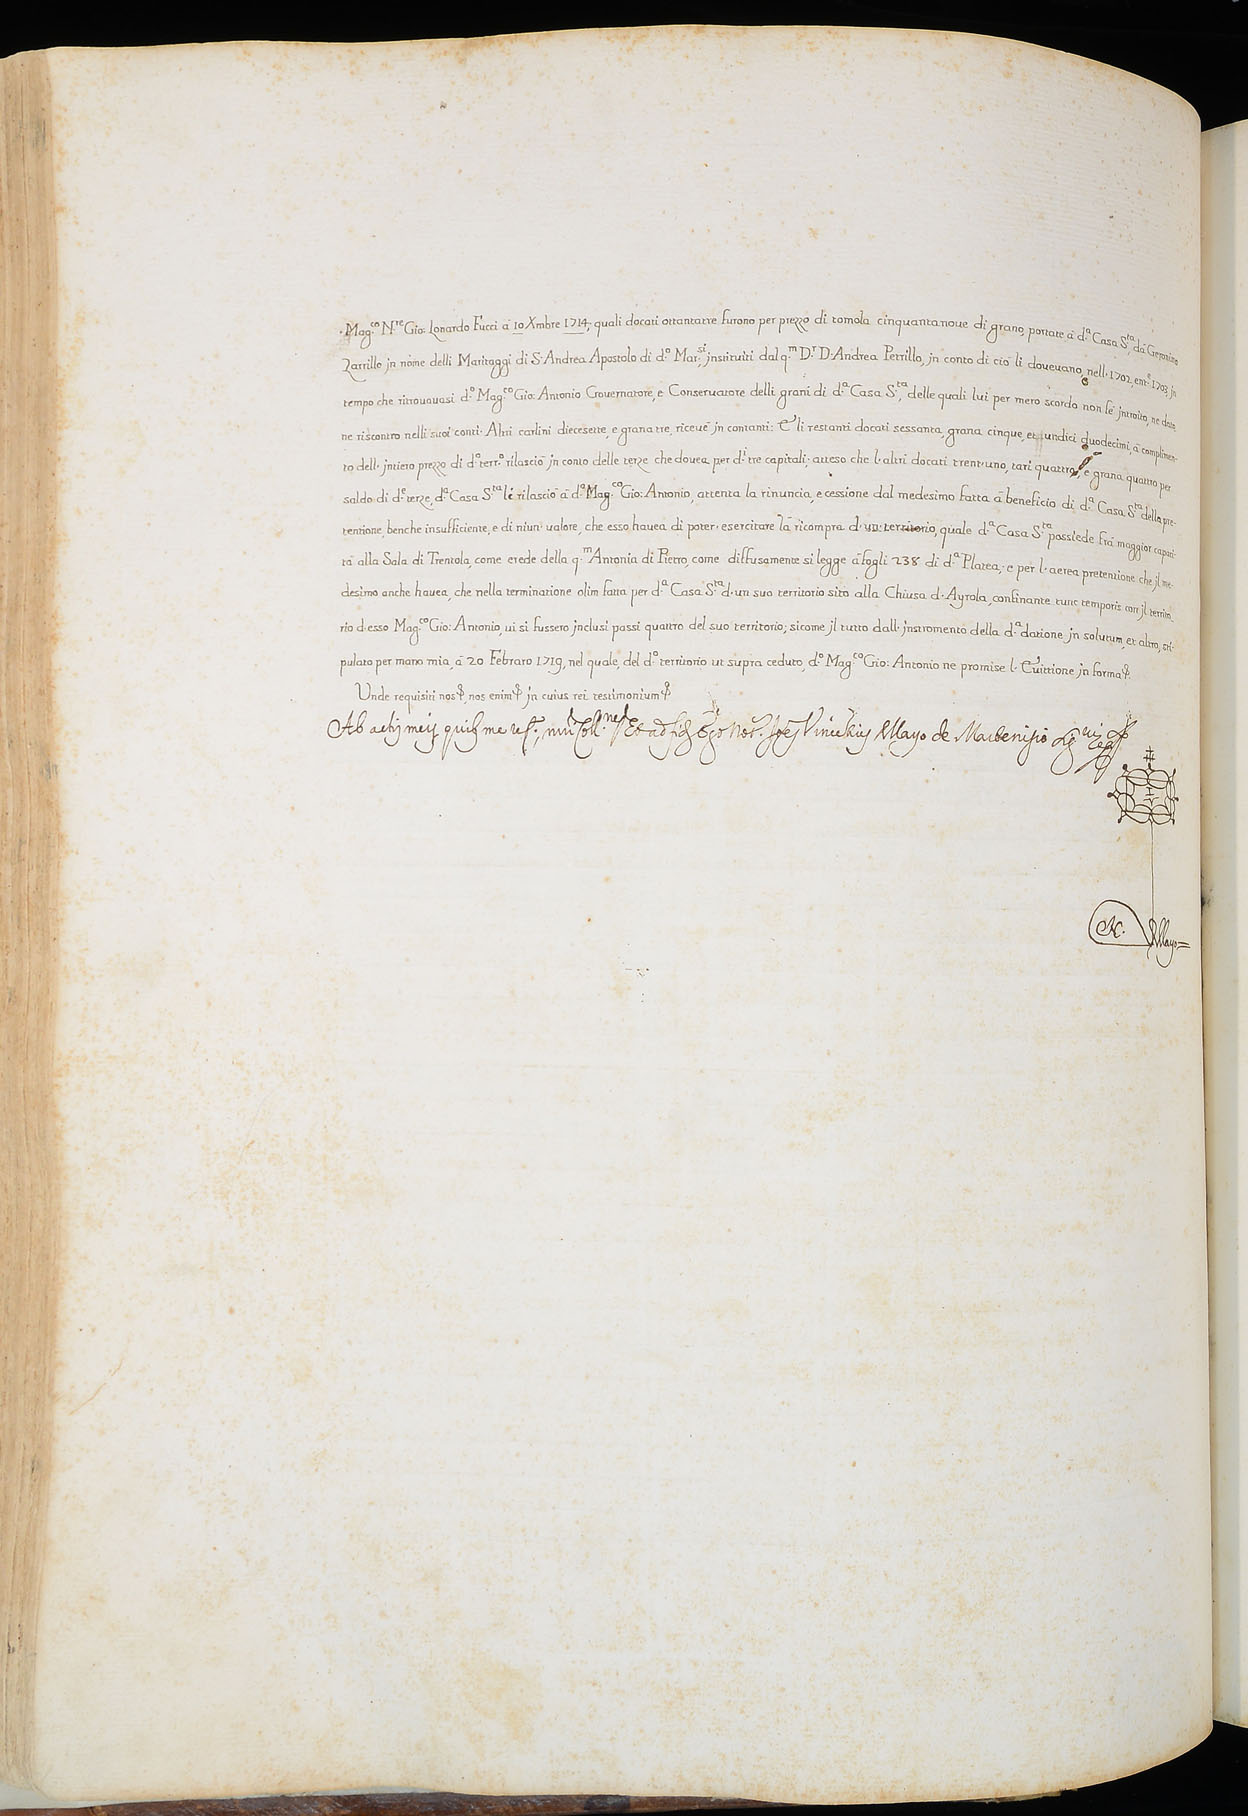 Mag.co N.re Gio: Lonardo Fucci à 10 Xmbre 1714, quali docati ottantatre furono per prezzo di tomola cinquantanoue di grano, portate à d.a Casa S.ta, dà Geronimo
Zarrillo jn nome delli Maritaggi di S. Andrea Apostolo di d.o Mar.si, jnstituiti dal q.m D.r D. Andrea Perrillo, jn conto di ciò li doueuano, nell. 1702. ent.e 1703, jn
tempo che ritrouauasi d.o Mag.co Gio: Antonio Gouernatore, e Conseruatore delli grani di d.a Casa S.ta, delle quali lui per mero scordo non fè jntroito, ne dato
ne riscontro nelli suoi conti. Altri carlini diecesette, e grana tre, riceuè jn contanti: E li restanti docati sessanta, grana cinque, et undici duodecimi, à complimen-
to dell. jntiero prezzo di d.o terr.o rilasciò jn conto delle terze che douea per d.i tre capitali; atteso che l. altri docati trent. uno, tarì quattro, e grana quattro per
saldo di d.e terze, d.a Casa S.ta li rilasciò à d.o Mag.co Gio: Antonio, attenta la rinuncia, e cessione dal medesimo fatta à beneficio di d.a Casa S.ta della pre-
tentione, benche insufficiente, e di niun. ualore, che esso hauea di poter. esercitare la ricompra d. un territorio, quale d.a Casa S.ta possiede frà maggior capaci-
tà alla Sala di Trentola, come erede della q.m Antonia di Pietro, come diffusamente si legge à fogli 238 di d.a Platea, e per l. aerea pretentione che jl me-
desimo anche hauea, che nella terminatione olim fatta per d.a Casa S.ta d. un suo territorio sito alla Chiusa d. Ayrola, confinante tunc temporis con jl territo-
rio d. esso Mag.co Gio: Antonio, ui si fussero jnclusi passi quattro del suo territorio; sicome jl tutto dall. jnstromento della d.a datione jn solutum, et altro, sti-
pulato per mano mia, à 20 Febraro 1719, nel quale, del d.o territorio ut supra ceduto, d.o Mag.co Gio: Antonio ne promise l. Euittione jn forma
Unde requisiti nos, nos enim jn cuius rei testimonium
Ab actis meis quibus me Ego Not. Joes Vincentius Mayo de Marcenisio
Mayo